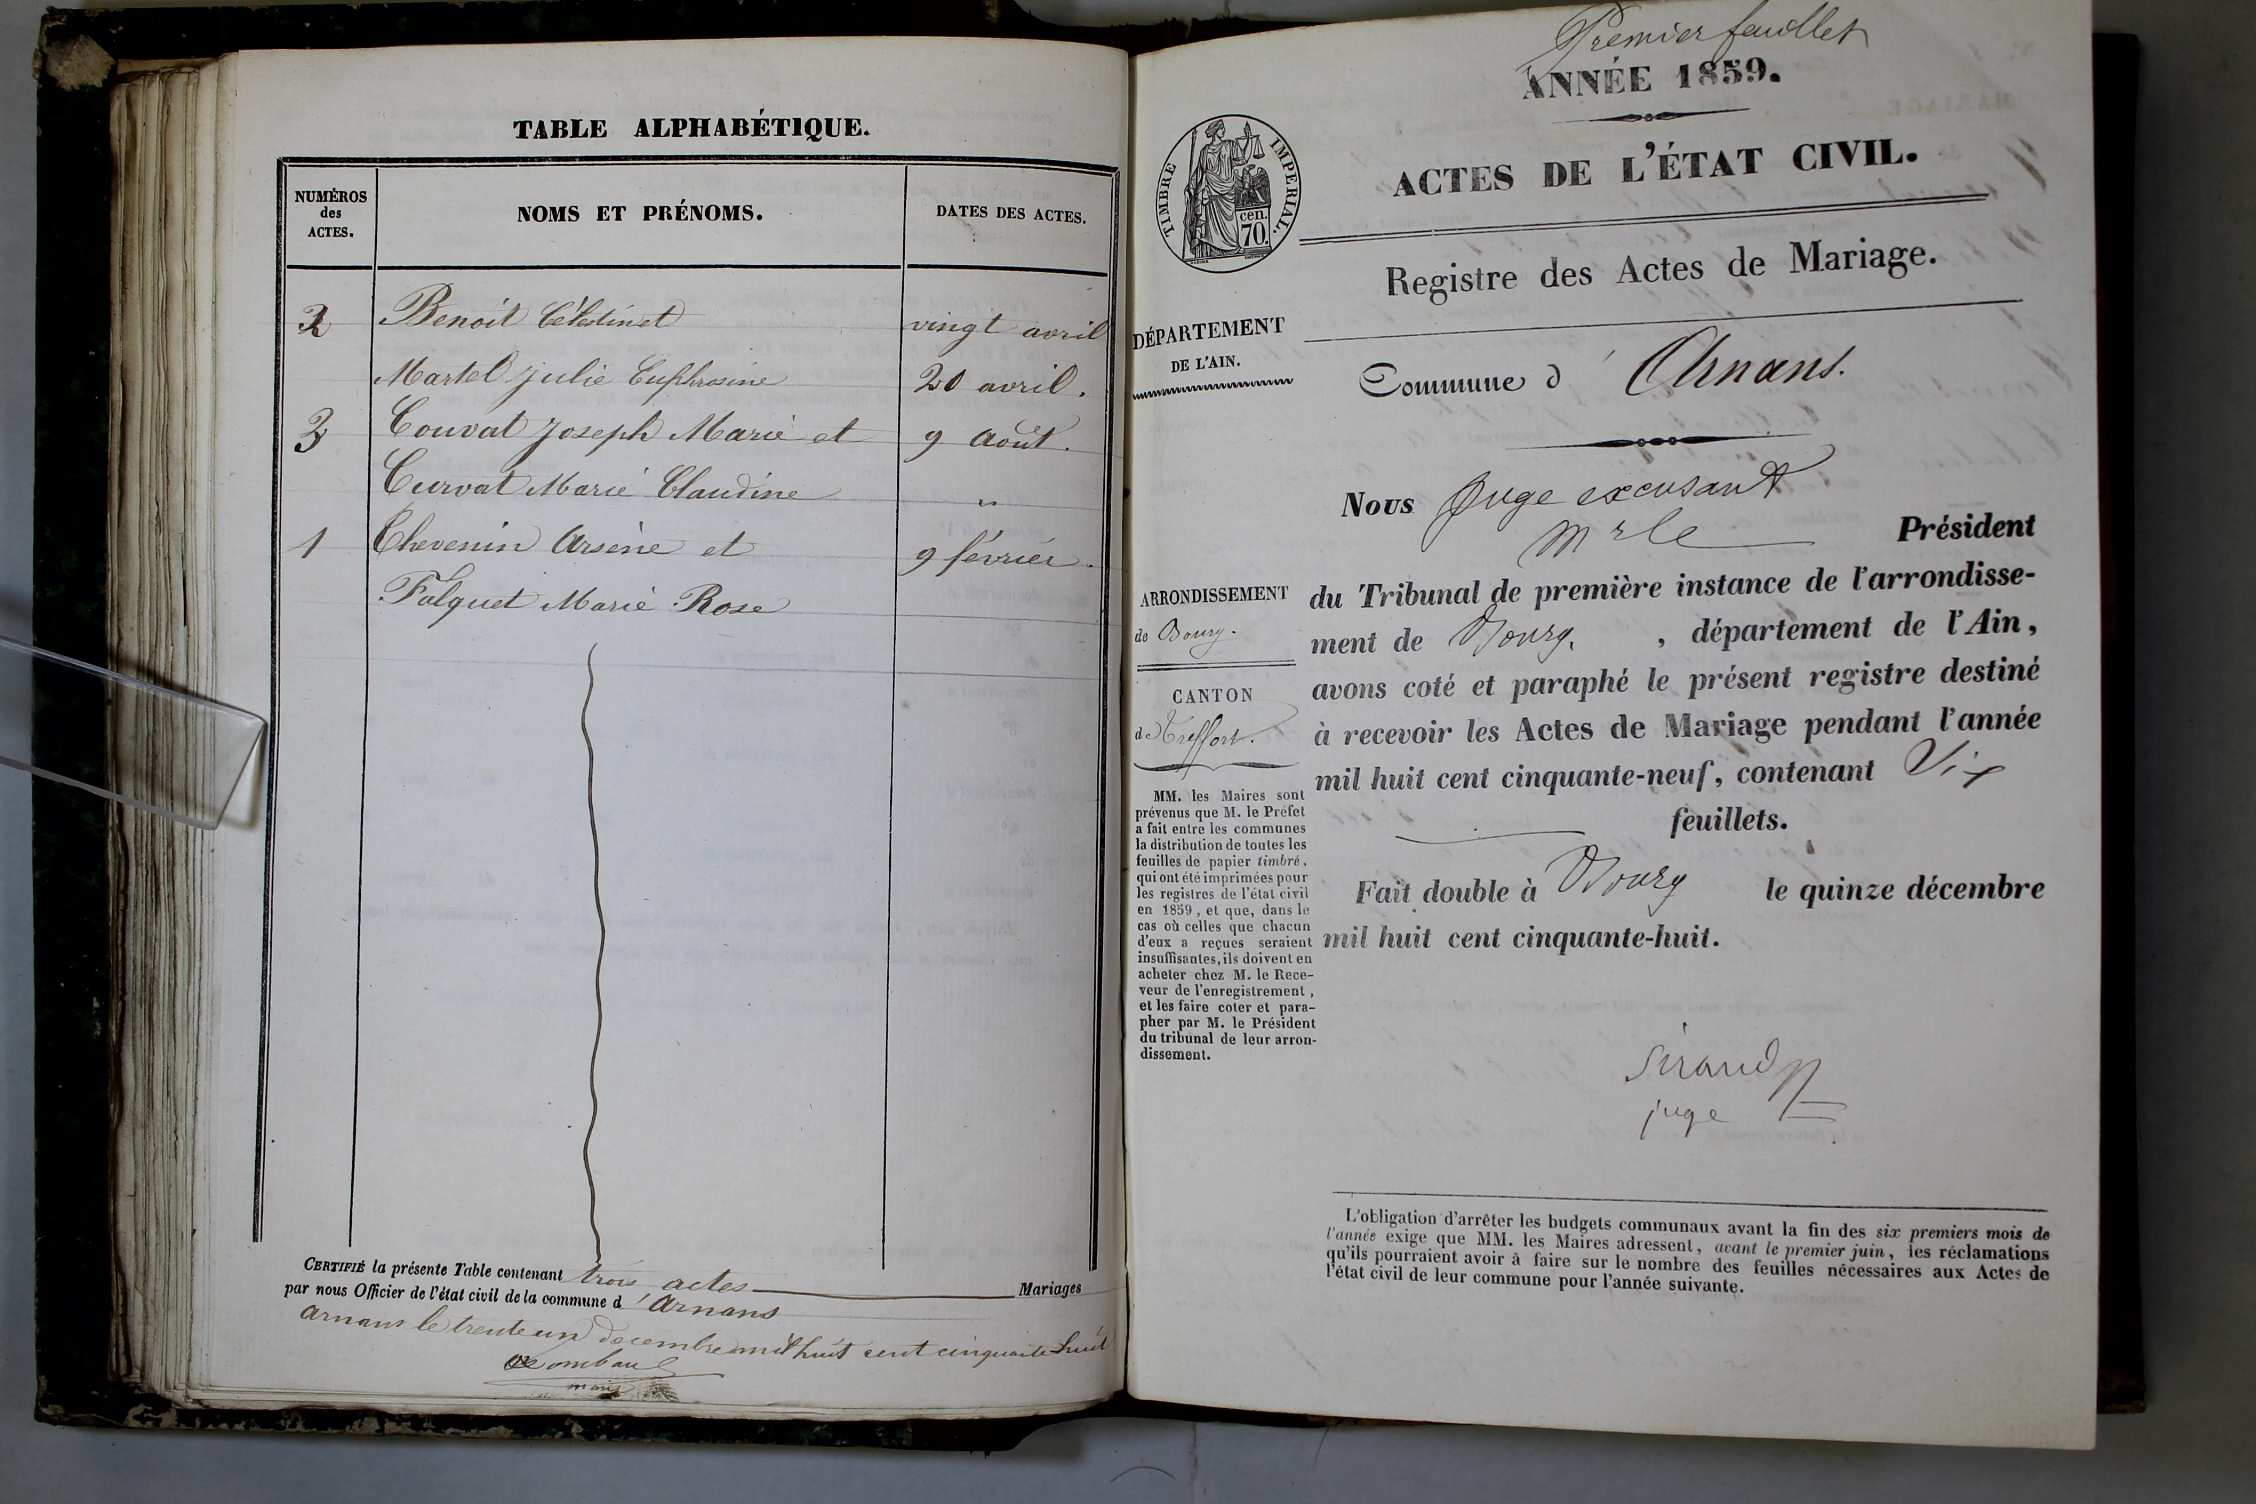 TABLE ALPHABÉTIQUE.
NUMÉROS
des
ACTES.
NOMS ET PRÉNOMS.
DATES DES ACTES.
2 Benoit Célestin et vingt avril
Martel Julie Euphrosine 20 avril.
3 Couvat Joseph Marie et 9 août.
Curvat Marie Claudine "
1 Thevenin Arsène et 9 février.
Falquet Marie Rose
CERTIFIÉ la présente Table contenant trois actes Mariages
par nous Officier de l'état civil de la commune d'Arnans
arnans le trente un decembre mil huit cent cinquante huit
maire
Premier feuillet
ANNÉE 1859.
TIMBRE IMPERIAL.
cen.
70.
ACTES DE L'ÉTAT CIVIL.
Registre des Actes de Mariage.
DÉPARTEMENT
DE L'AIN.
Commune d'Arnans.
Nous Juge excusant
Mr le Président
ARRONDISSEMENT
de Bourg.
CANTON
de Treffort.
du Tribunal de première instance de l'arrondisse-
ment de Bourg, département de l'Ain,
avons coté et paraphé le présent registre destiné
à recevoir les Actes de Mariage pendant l'année
mil huit cent cinquante-neuf, contenant Six
feuillets.
Fait double à Bourg le quinze décembre
mil huit cent cinquante-huit.
MM. les Maires sont
prévenus que M. le Préfet
a fait entre les communes
la distribution de toutes les
feuilles de papier timbré,
qui ont été imprimées pour
les registres de l'état civil
en 1859, et que, dans le
cas où celles que chacun
d'eux a reçues seraient
insuffisantes, ils doivent en
acheter chez M. le Rece-
veur de l'enregistrement,
et les faire coter et para-
pher par M. le Président
du tribunal de leur arron-
dissement.
Sirand
juge
L'obligation d'arrêter les budgets communaux avant la fin des six premiers mois de
l'année exige que MM. les Maires adressent, avant le premier juin, les réclamations
qu'ils pourraient avoir à faire sur le nombre des feuilles nécessaires aux Actes de
l'état civil de leur commune pour l'année suivante.